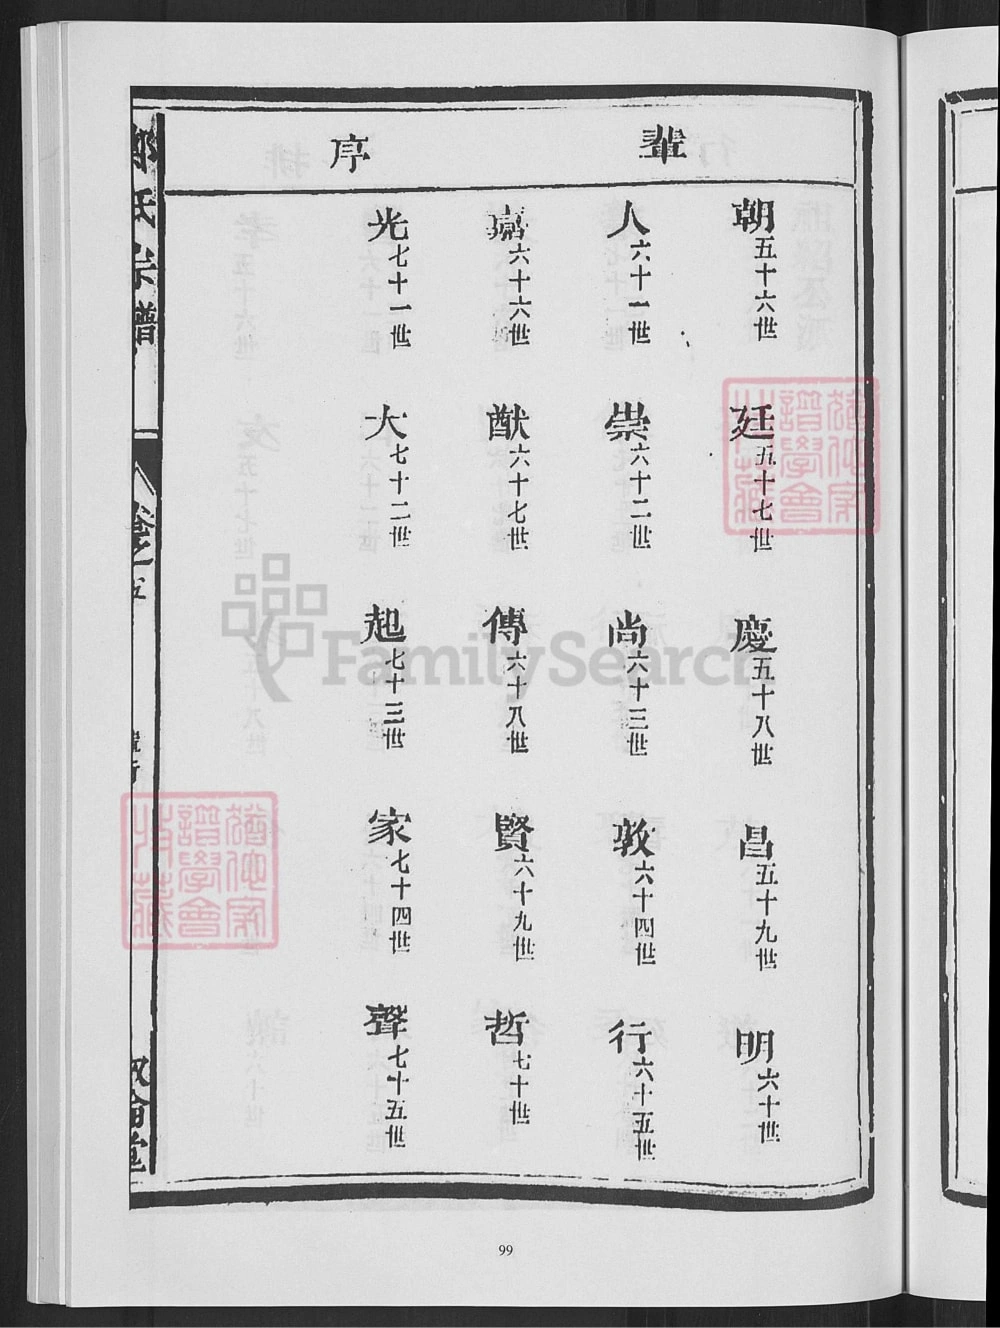 輩序
朝五十六世 廷五十七世 慶五十八世 昌五十九世 明六十世
人六十一世 崇六十二世 尚六十三世 敦六十四世 行六十五世
嘉六十六世 猷六十七世 傳六十八世 賢六十九世 哲七十世
光七十一世 大七十二世 起七十三世 家七十四世 聲七十五世
氏宗譜
卷之五
堂
譜學會
FamilySearch
譜學會
99